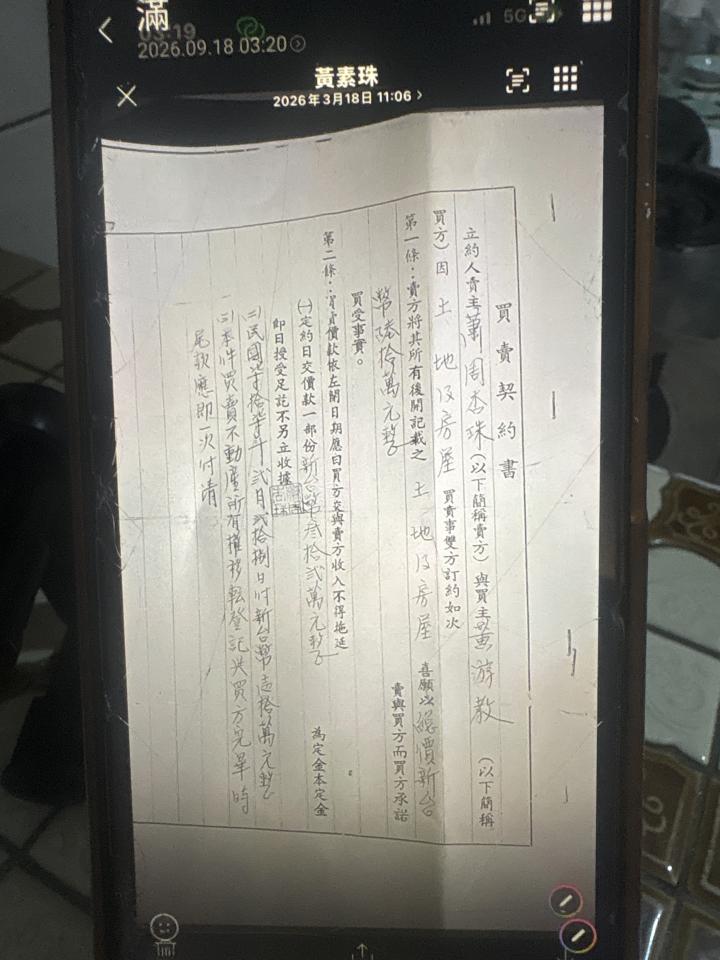 滿
03:19
5G
2026.09.18 03:20
黃素珠
2026年3月18日 11:06
買賣契約書
立約人賣主蕭周杏珠(以下簡稱賣方)與買主 游散 (以下簡稱
買方)因土地及房屋買賣事雙方訂約如次
第一條:賣方將其所有後開記載之土地及房屋喜願以總價新台
幣陸拾萬元整 賣與買方而買方承諾
買受事實。
第二條:買賣價款依左開日期應由買方交與賣方收入不得拖延
㈠定約日交價款一部份新台幣叁拾貳萬元整 為定金本定金
即日授受足訖不另立收據
㈡民國柒拾柒年貳月貳拾捌日付新台幣壹拾萬元整
㈢本件買賣不動產所有權移轉登記與買方完畢時
尾款應即一次付清